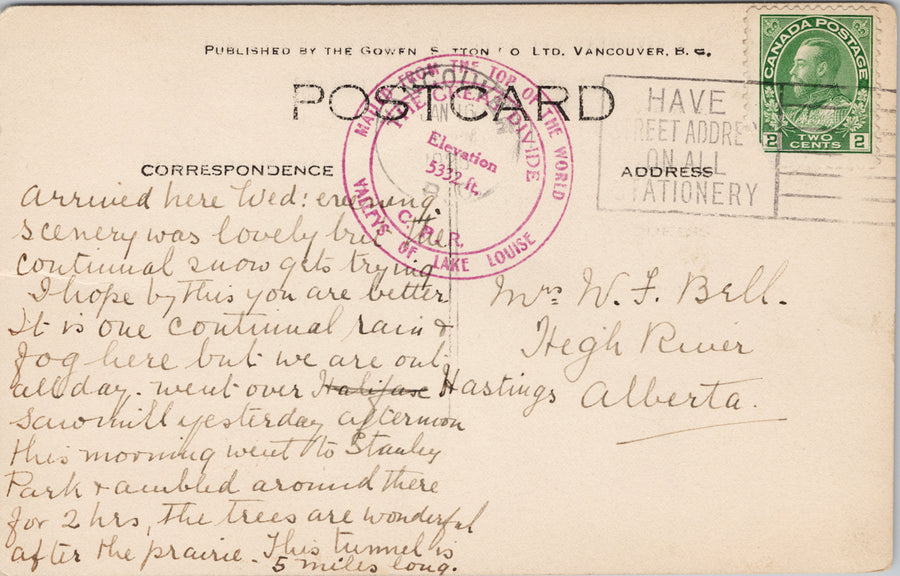 PUBLISHED BY THE GOWEN SUTTON CO LTD. VANCOUVER, B.C.
POSTCARD
MAILED FROM THE TOP OF THE WORLD
THE GREAT DIVIDE
Elevation
5332 ft.
C. P. R.
VALLEYS OF LAKE LOUISE
VANCOUVER
JAN 16
B.C
HAVE
STREET ADDRESS
ON ALL
STATIONERY
CANADA POSTAGE
2 TWO CENTS 2
CORRESPONDENCE
ADDRESS
arrived here Wed: evening.
scenery was lovely but the
continual snow gets trying
I hope by this you are better
It is one continual rain &
fog here but we are out
all day. went over Halifax Hastings
sawmill yesterday afternoon
this morning went to Stanley
Park & ambled around there
for 2 hrs, the trees are wonderful
after the prairie. This tunnel is
5 miles long.
Mrs W. F. Bell.
Hegh River
Alberta.